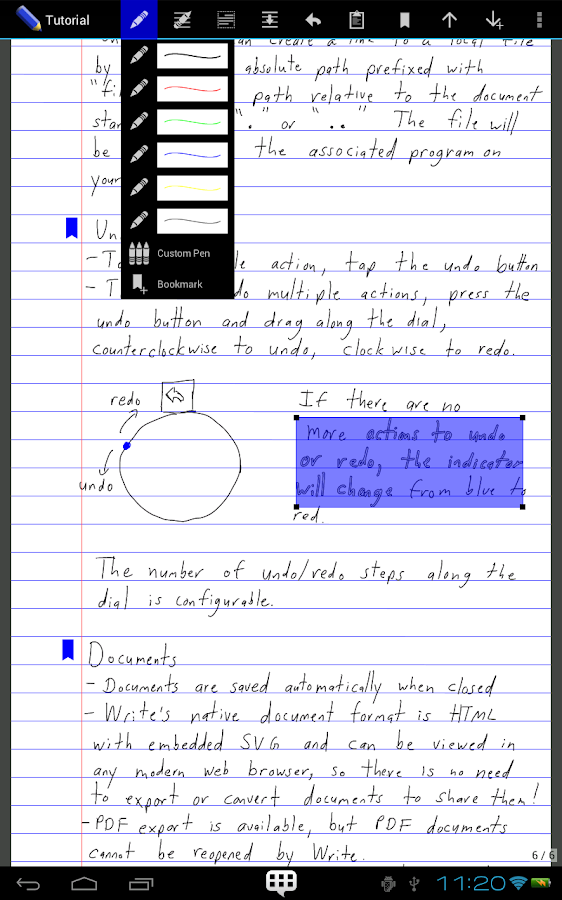 Tutorial
an create a link to a local file
by absolute path prefixed with
path relative to the document
"." or ".." The file will
be the associated program on
your
Custom Pen
Bookmark
action, tap the undo button
multiple actions, press the
undo button and drag along the dial,
counterclockwise to undo, clockwise to redo.
redo
undo
If there are no
more actions to undo
or redo, the indicator
will change from blue to
red.
The number of undo/redo steps along the
dial is configurable.
Documents
- Documents are saved automatically when closed
- Write's native document format is HTML
with embedded SVG and can be viewed in
any modern web browser, so there is no need
to export or convert documents to share them!
- PDF export is available, but PDF documents
cannot be reopened by Write.
6/6
11:20